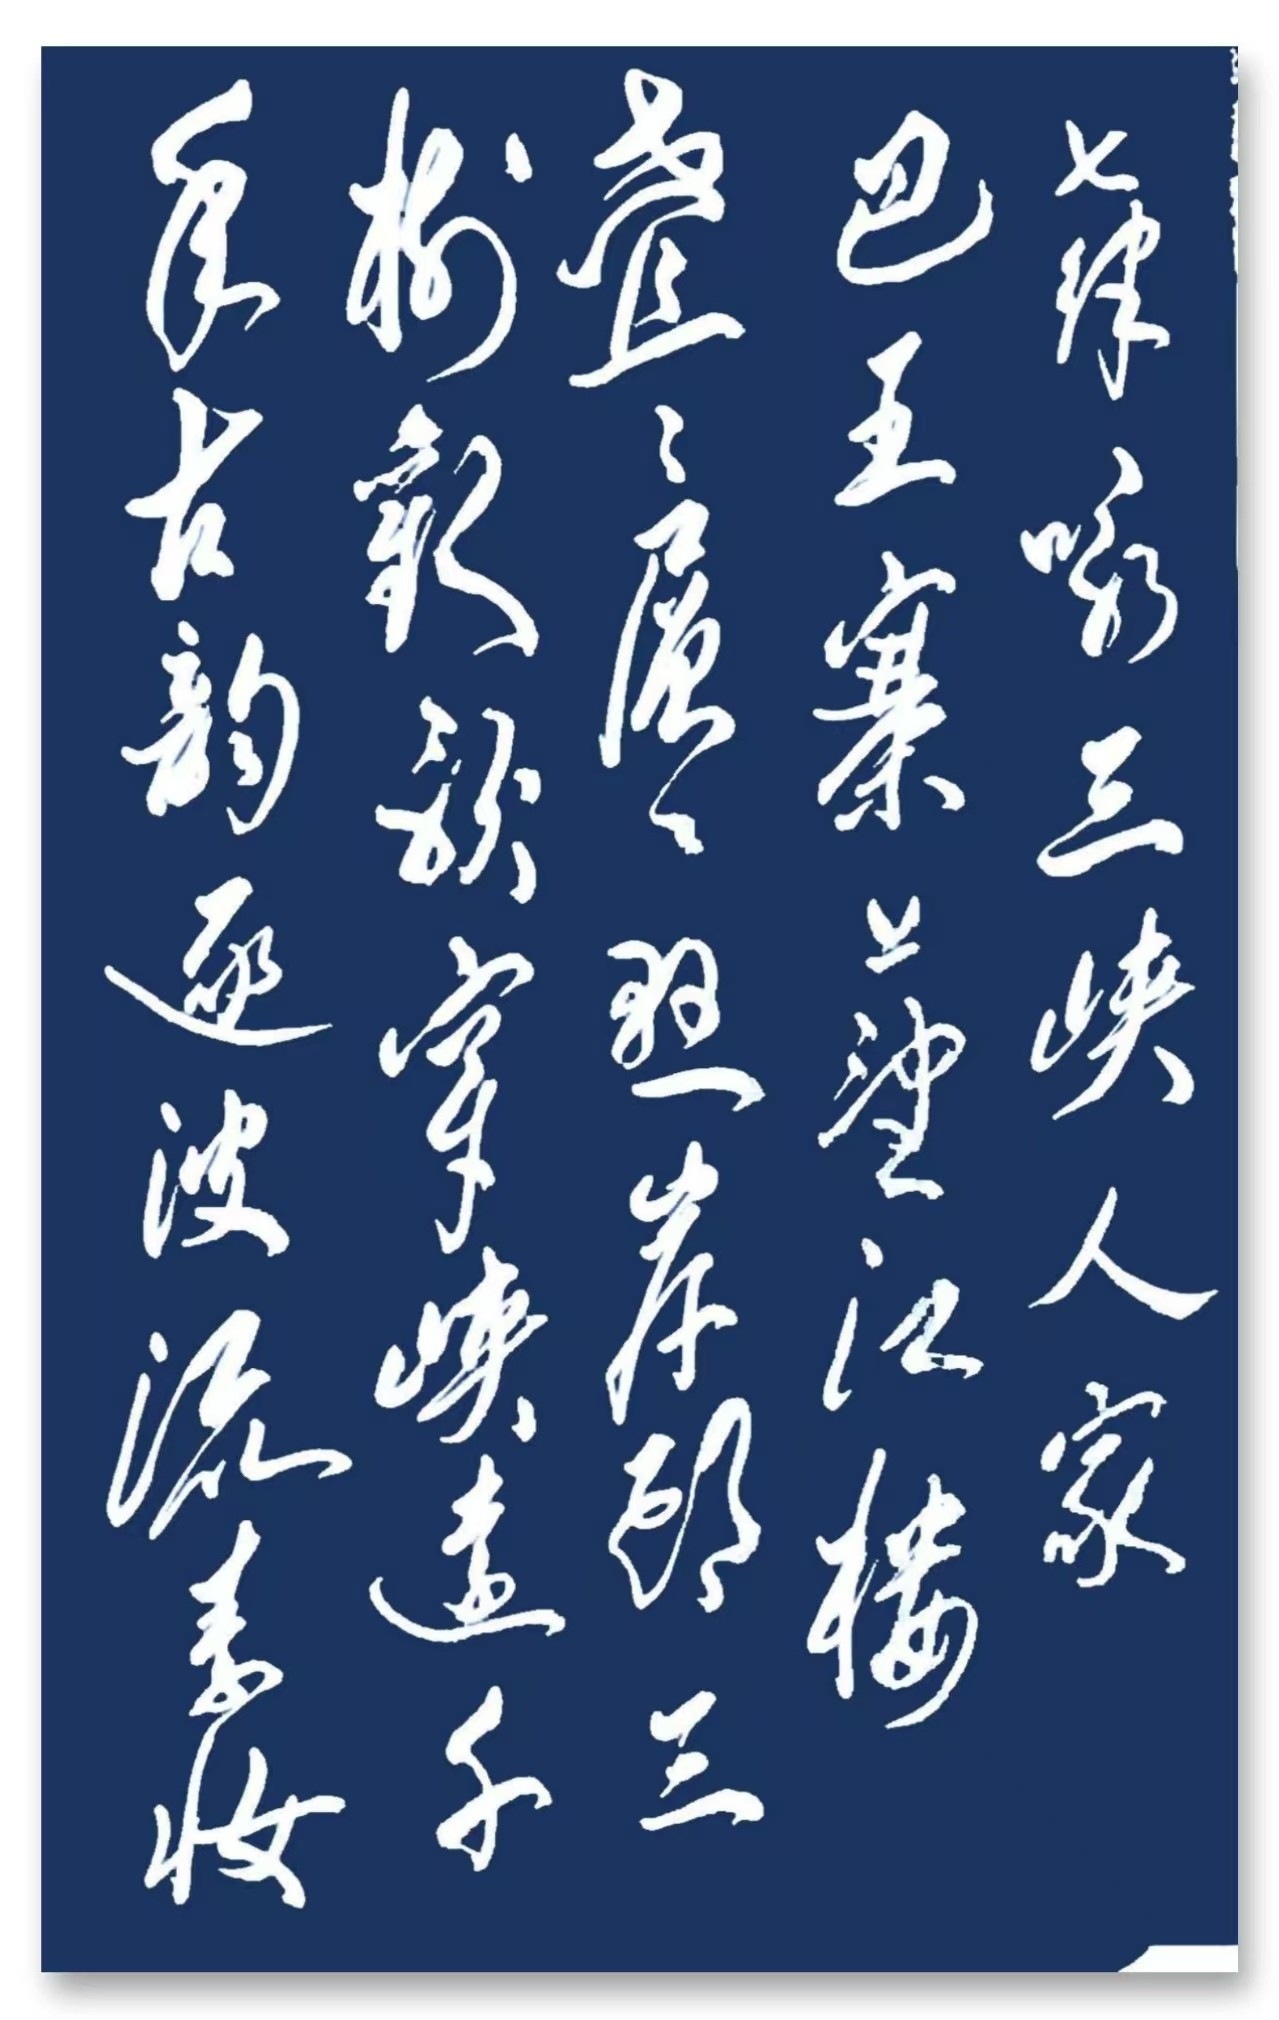 七律咏三峡人家
巴王寨上望江楼
叠叠层层岸三
欢歌穿峡远千
年古韵逐波流素妆